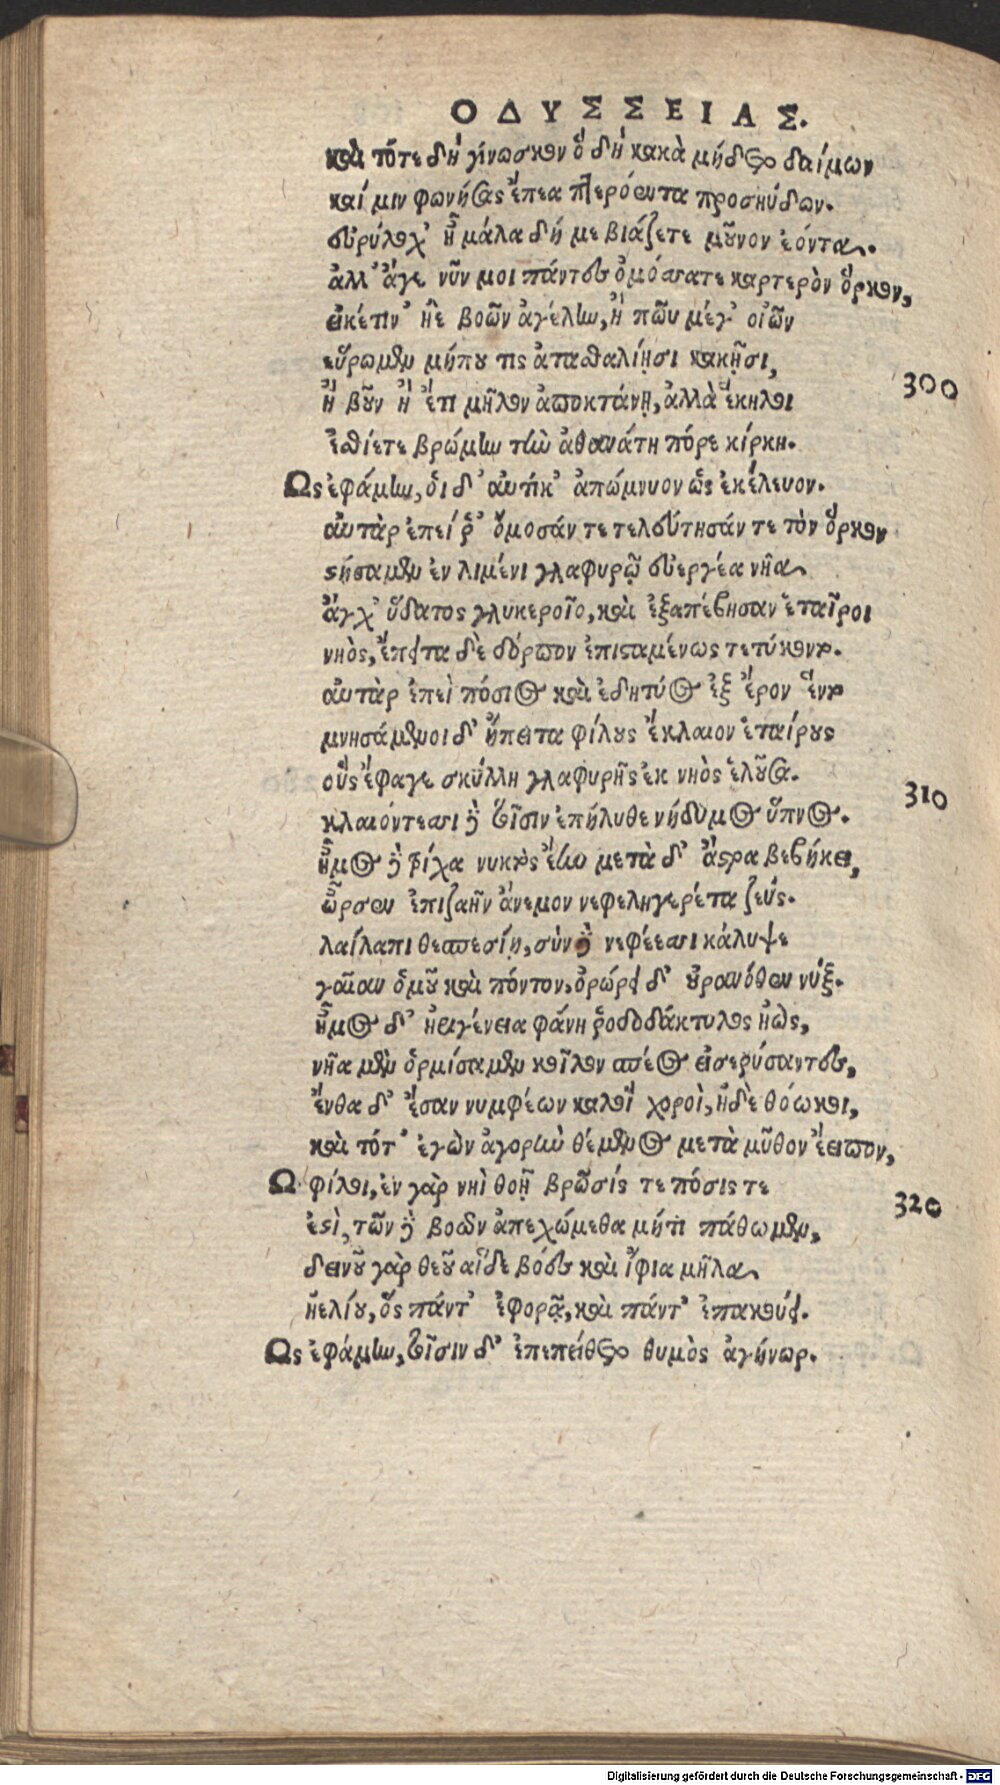 ΟΔΥΣΣΕΙΑΣ.
καὶ τότε δὴ γίνωσκον ὃ δὴ κακὰ μήδετο δαίμων
καί μιν φωνήσας ἔπεα πτερόεντα προσηύδων.
εὐρύλοχ' ἦ μάλα δή με βιάζετε μοῦνον ἐόντα.
ἀλλ' ἄγε νῦν μοι πάντες ὀμόσατε καρτερὸν ὅρκον,
εἰκέτιν' ἠὲ βοῶν ἀγέλην, ἢ πῶυ μέγ' οἰῶν
εὕρωμεν μήπου τις ἀτασθαλίῃσι κακῇσι,
300
ἢ βοῦν ἢ ἔτι μῆλον ἀποκτάνῃ, ἀλλὰ ἕκηλοι
ἐσθίετε βρώμην τὴν ἀθανάτη πόρε κίρκη.
Ως ἐφάμην, ὁι δ' αὐτίκ' ἀπώμνυον ὡς ἐκέλευον.
αὐτὰρ ἐπεί ῥ' ὄμοσάν τε τελεύτησάν τε τὸν ὅρκον
στήσαμεν ἐν λιμένι γλαφυρῷ εὐεργέα νῆα
ἄγχ' ὕδατος γλυκεροῖο, καὶ ἐξαπέβησαν ἑταῖροι
νηὸς, ἔπειτα δὲ δόρπον ἐπισταμένως τετύκοντο.
αὐτὰρ ἐπεὶ πόσιος καὶ ἐδητύος ἐξ ἔρον ἕντο
μνησάμενοι δ' ἤπειτα φίλους ἔκλαιον ἑταίρους
οὓς ἔφαγε σκύλλη γλαφυρῆς ἐκ νηὸς ἑλοῦσα.
310
κλαιόντεσσι δὲ τοῖσιν ἐπήλυθε νήδυμος ὕπνος.
ἦμος δὲ τρίχα νυκτὸς ἔην μετὰ δ' ἄστρα βεβήκει,
ὦρσεν ἐπιζαῆν ἄνεμον νεφεληγερέτα ζεύς.
λαίλαπι θεσπεσίῃ, σὺν δὲ νεφέεσσι κάλυψε
γαῖαν ὁμοῦ καὶ πόντον, ὀρώρει δ' οὐρανόθεν νύξ.
ἦμος δ' ἠριγένεια φάνη ῥοδοδάκτυλος ἠὼς,
νῆα μὲν ὁρμίσαμεν κοῖλον σπέος εἰσερύσαντες,
ἔνθα δ' ἔσαν νυμφέων καλοὶ χοροὶ, ἠδὲ θόωκοι,
καὶ τότ' ἐγὼν ἀγορὴν θέμενος μετὰ μῦθον ἔειπον,
Ω φίλοι, ἐν γὰρ νηὶ θοῇ βρῶσίς τε πόσις τε
320
ἐστὶ, τῶν δὲ βοῶν ἀπεχώμεθα μήτι πάθωμεν,
δεινοῦ γὰρ θεοῦ αἵδε βόες καὶ ἴφια μῆλα
ἠελίου, ὃς πάντ' ἐφορᾷ, καὶ πάντ' ἐπακούει.
Ως ἐφάμην, τοῖσιν δ' ἐπεπείθετο θυμὸς ἀγήνωρ.
Digitalisierung gefördert durch die Deutsche Forschungsgemeinschaft - DFG